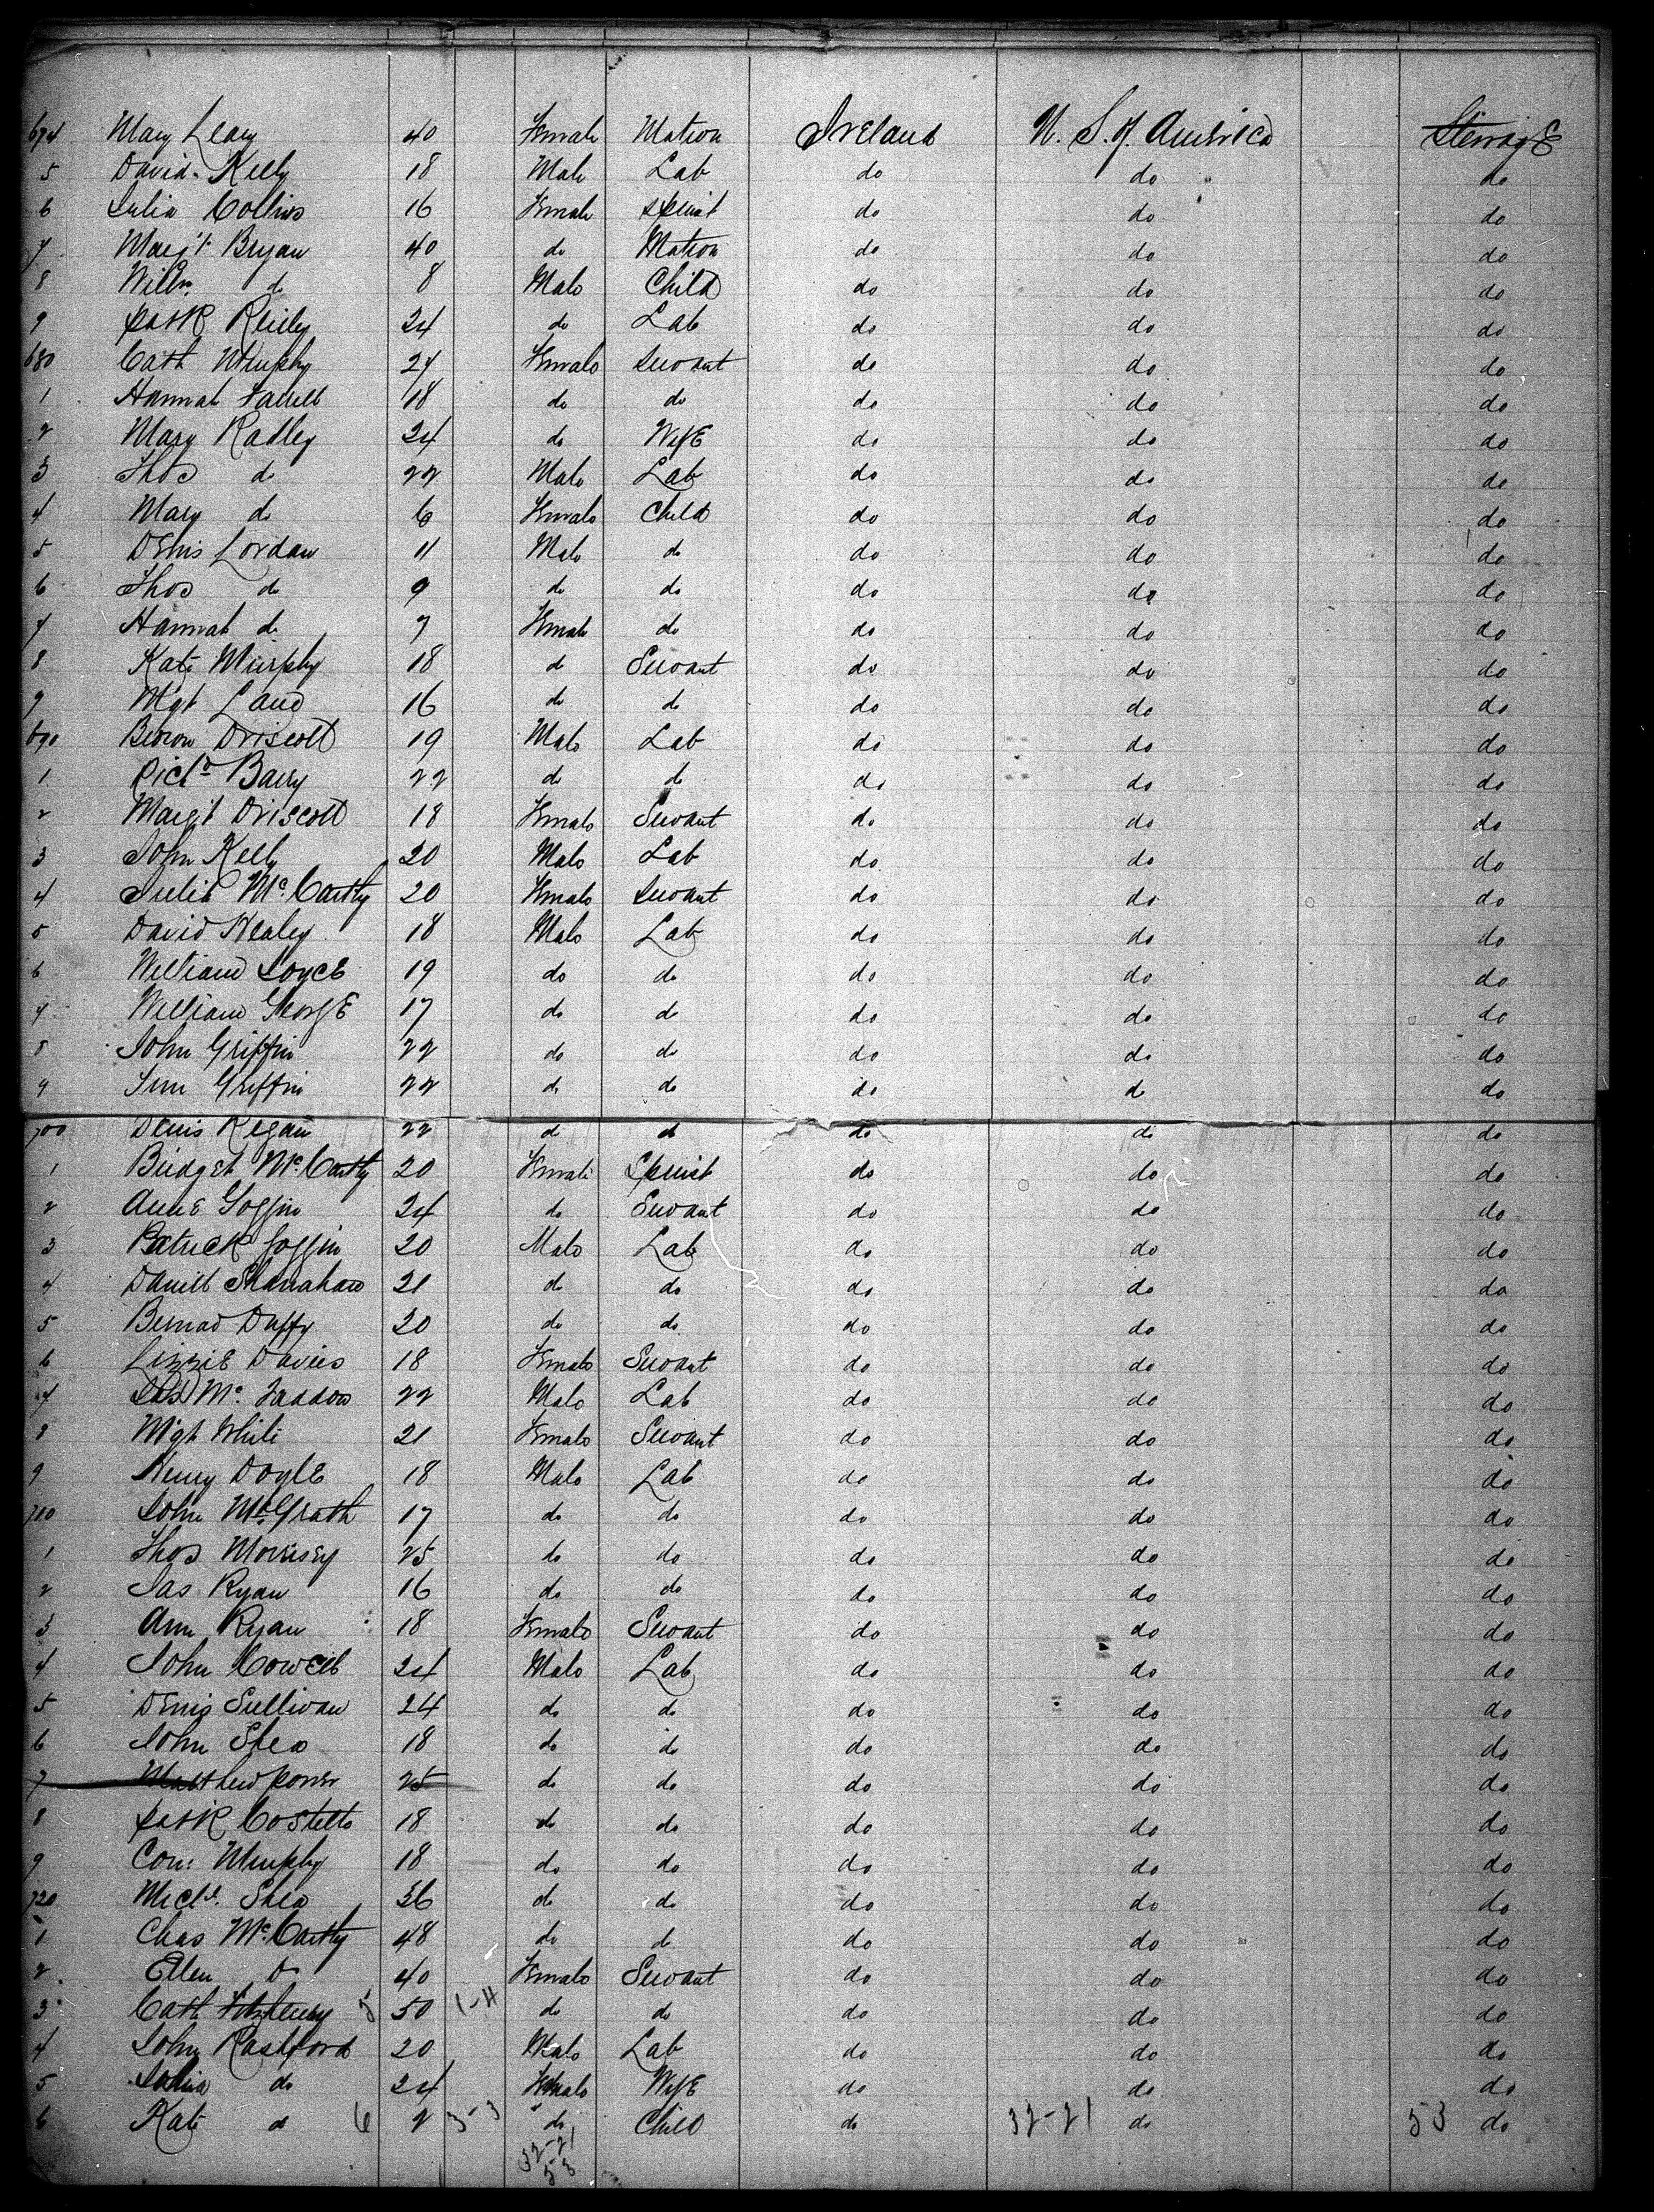 674 Mary Leary 40 Female Matron Ireland U. S. of America Sterrage
5 David Kelly 18 Male Lab do do do
6 Julia Collins 16 Female Spinst do do do
7 Marg't Bryan 40 do Matron do do do
8 Willm do 8 Male Child do do do
9 Patk Reiley 24 do Lab do do do
680 Cath Murphy 24 Female Servant do do do
1 Hannah 18 do do do do do
2 Mary Radley 24 do Wife do do do
3 Thos do 22 Male Lab do do do
4 Mary do 6 Female Child do do do
5 Denis Lordan 11 Male do do do do
6 Thos do 9 do do do do do
7 Hannah do 7 Female do do do do
8 Kate Murphy 18 do Servant do do do
9 Mgt Lane 16 do do do do do
690 Driscoll 19 Male Lab do do do
1 Richd Barry 22 do do do do do
2 Marg't Driscoll 18 Female Servant do do do
3 John Kelly 20 Male Lab do do do
4 Julia McCarthy 20 Female Servant do do do
5 David Healey 18 Male Lab do do do
6 William Joyce 19 do do do do do
7 William George 17 do do do do do
8 John Griffin 22 do do do do do
9 Griffin 22 do do do do do
700 Denis Regan 22 do do do do do
1 Bridget McCarthy 20 Female Spinst do do do
2 Anne Goggin 24 do Servant do do do
3 Patrick Goggin 20 Male Lab do do do
4 Daniel Shanahan 21 do do do do do
5 Bernad Duffy 20 do do do do do
6 Lizzie Davies 18 Female Servant do do do
7 Jas Mc Faddon 22 Male Lab do do do
8 Mgt White 21 Female Servant do do do
9 Henry Doyle 18 Male Lab do do do
710 John McGrath 17 do do do do do
1 Thos Morrisey 25 do do do do do
2 Jas Ryan 16 do do do do do
3 Ann Ryan 18 Female Servant do do do
4 John 24 Male Lab do do do
5 Denis Sullivan 24 do do do do do
6 John Shea 18 do do do do do
7 Matthew Power 25 do do do do do
8 Patk Costello 18 do do do do do
9 Con: Murphy 18 do do do do do
720 Michl. Shea 26 do do do do do
1 Chas McCarthy 48 do do do do do
2 Ellen Do 40 Female Servant do do do
3 Cath Fitzhenry 5 50 1-11 do do do do do
4 John Rashford 20 Male Lab do do do
5 do 24 Female Wife do do do
6 Kate do 6 2 3-3 do Child do 32-21 do 53 do
32-21
53